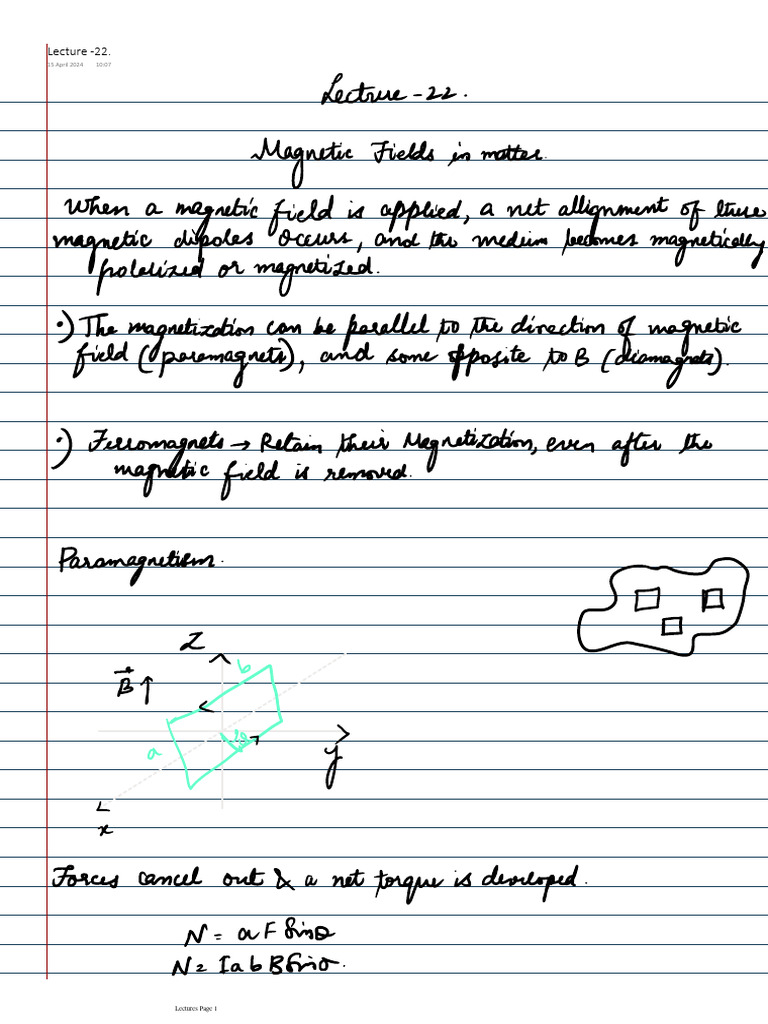 Lecture -22.
15 April 2024 10:07
Lecture-22.
Magnetic Fields in matter.
When a magnetic field is applied, a net allignment of these
magnetic dipoles occurs, and the medium becomes magnetically
polarized or magnetized.
•) The magnetization can be parallel to the direction of magnetic
field (paramagnets), and some opposite to B (diamagnets).
•) Ferromagnets → Retain their Magnetization, even after the
magnetic field is removed.
Paramagnetism.
Z
B ↑
b
a
y
x
Forces cancel out & a net torque is developed.
N = a F Sinθ
N = I a b B Sinθ.
Lectures Page 1